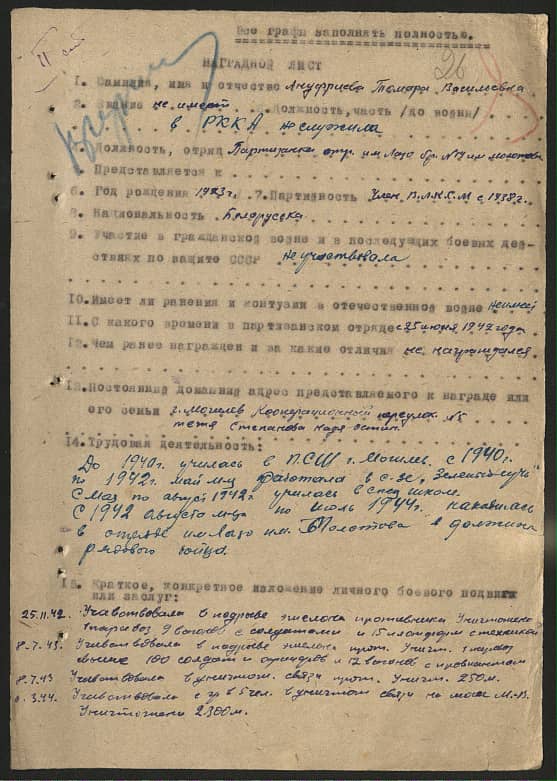 Все графы заполнять полностью.
НАГРАДНОЙ ЛИСТ
26
1. Фамилия, имя и отчество Ануфриева Тамара Васильевна
2. Звание не имеет 3. Должность, часть /до войны/
в РККА не служила
4. Должность, отряд Партизанка отр. им Лазо бр. №14 им молотова
5. Представляется к
6. Год рождения 1923г. 7. Партийность Член В.Л.К.С.М с 1938г.
8. Национальность Белорусска
9. Участие в гражданской войне и в последующих боевых дей-
ствиях по защите СССР не участвовала
10. Имеет ли ранения и контузии в отечественной войне не имеет
11. С какого времени в партизанском отряде с 25 июня 1942 года
12. Чем ранее награжден и за какие отличия не награждался
13. Постоянный домашний адрес представляемого к награде или
его семьи г. Могилев Кооперационный переулок №5
тетя Степанова Надя
14. Трудовая деятельность:
До 1940г. училась в П.С.Ш г. Могилев. с 1940г.
по 1942г. май м-ц работала в с-зе, "Зеленый-лучь"
С мая по август 1942г. училась в спец школе.
С 1942 августа м-ца по июль 1944г. находилась
в отряде им Лазо им. Молотова в должности
рядового бойца.
15. Краткое, конкретное изложение личного боевого подвига
или заслуг:
25.11.42. Учавствовала в подрыве эшелона противника Уничтожено
1 паровоз 9 вагонов с солдатами и 15 платформ с техникой
8.7.43. Учавствовала в подрыве эшелона прот. Уничт. 1 паровоз
выше 100 солдат и офицеров и 12 вагонов с провиантом
8.7.43 Учавствовала в уничтож. связи прот. Уничт. 250м.
3.44. Учавствовала с гр в 5 чел. в уничтож связи на шоссе М.-В.
Уничтожено 2300м.